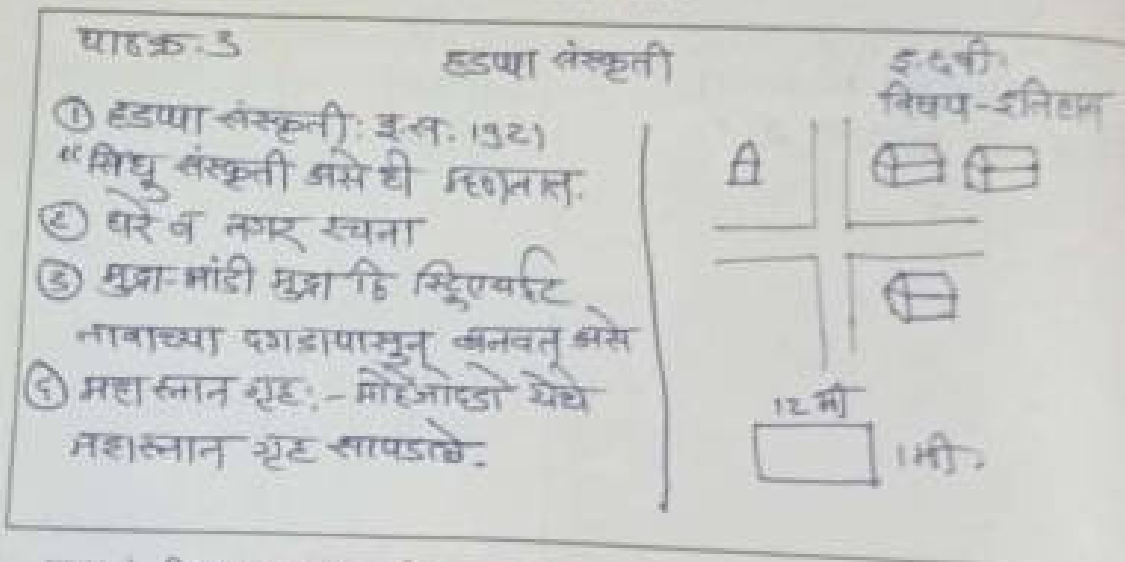 पाठक्र. 3
हडप्पा संस्कृती
इ. ६ वी.
विषय - इतिहास
① हडप्पा संस्कृती: इ.स. 1921
"सिंधू संस्कृती असे ही म्हणतात.
② घरे व नगर रचना
③ मुद्रा-भांडी मुद्रा हि स्टिएटाईट
नावाच्या दगडापासून बनवत असे
महास्नान गृह:- मोहेंजोदडो येथे
महास्नान गृह सापडले.
12 मी
1 मी.